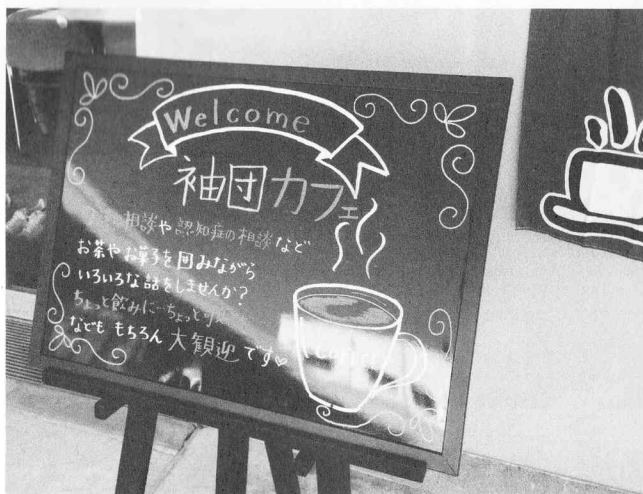 Welcome
袖団カフェ
相談や認知症の相談など
お茶やお菓子を囲みながら
いろいろな話をしませんか？
ちょっと飲みに…ちょっと
なども もちろん 大歓迎です♡